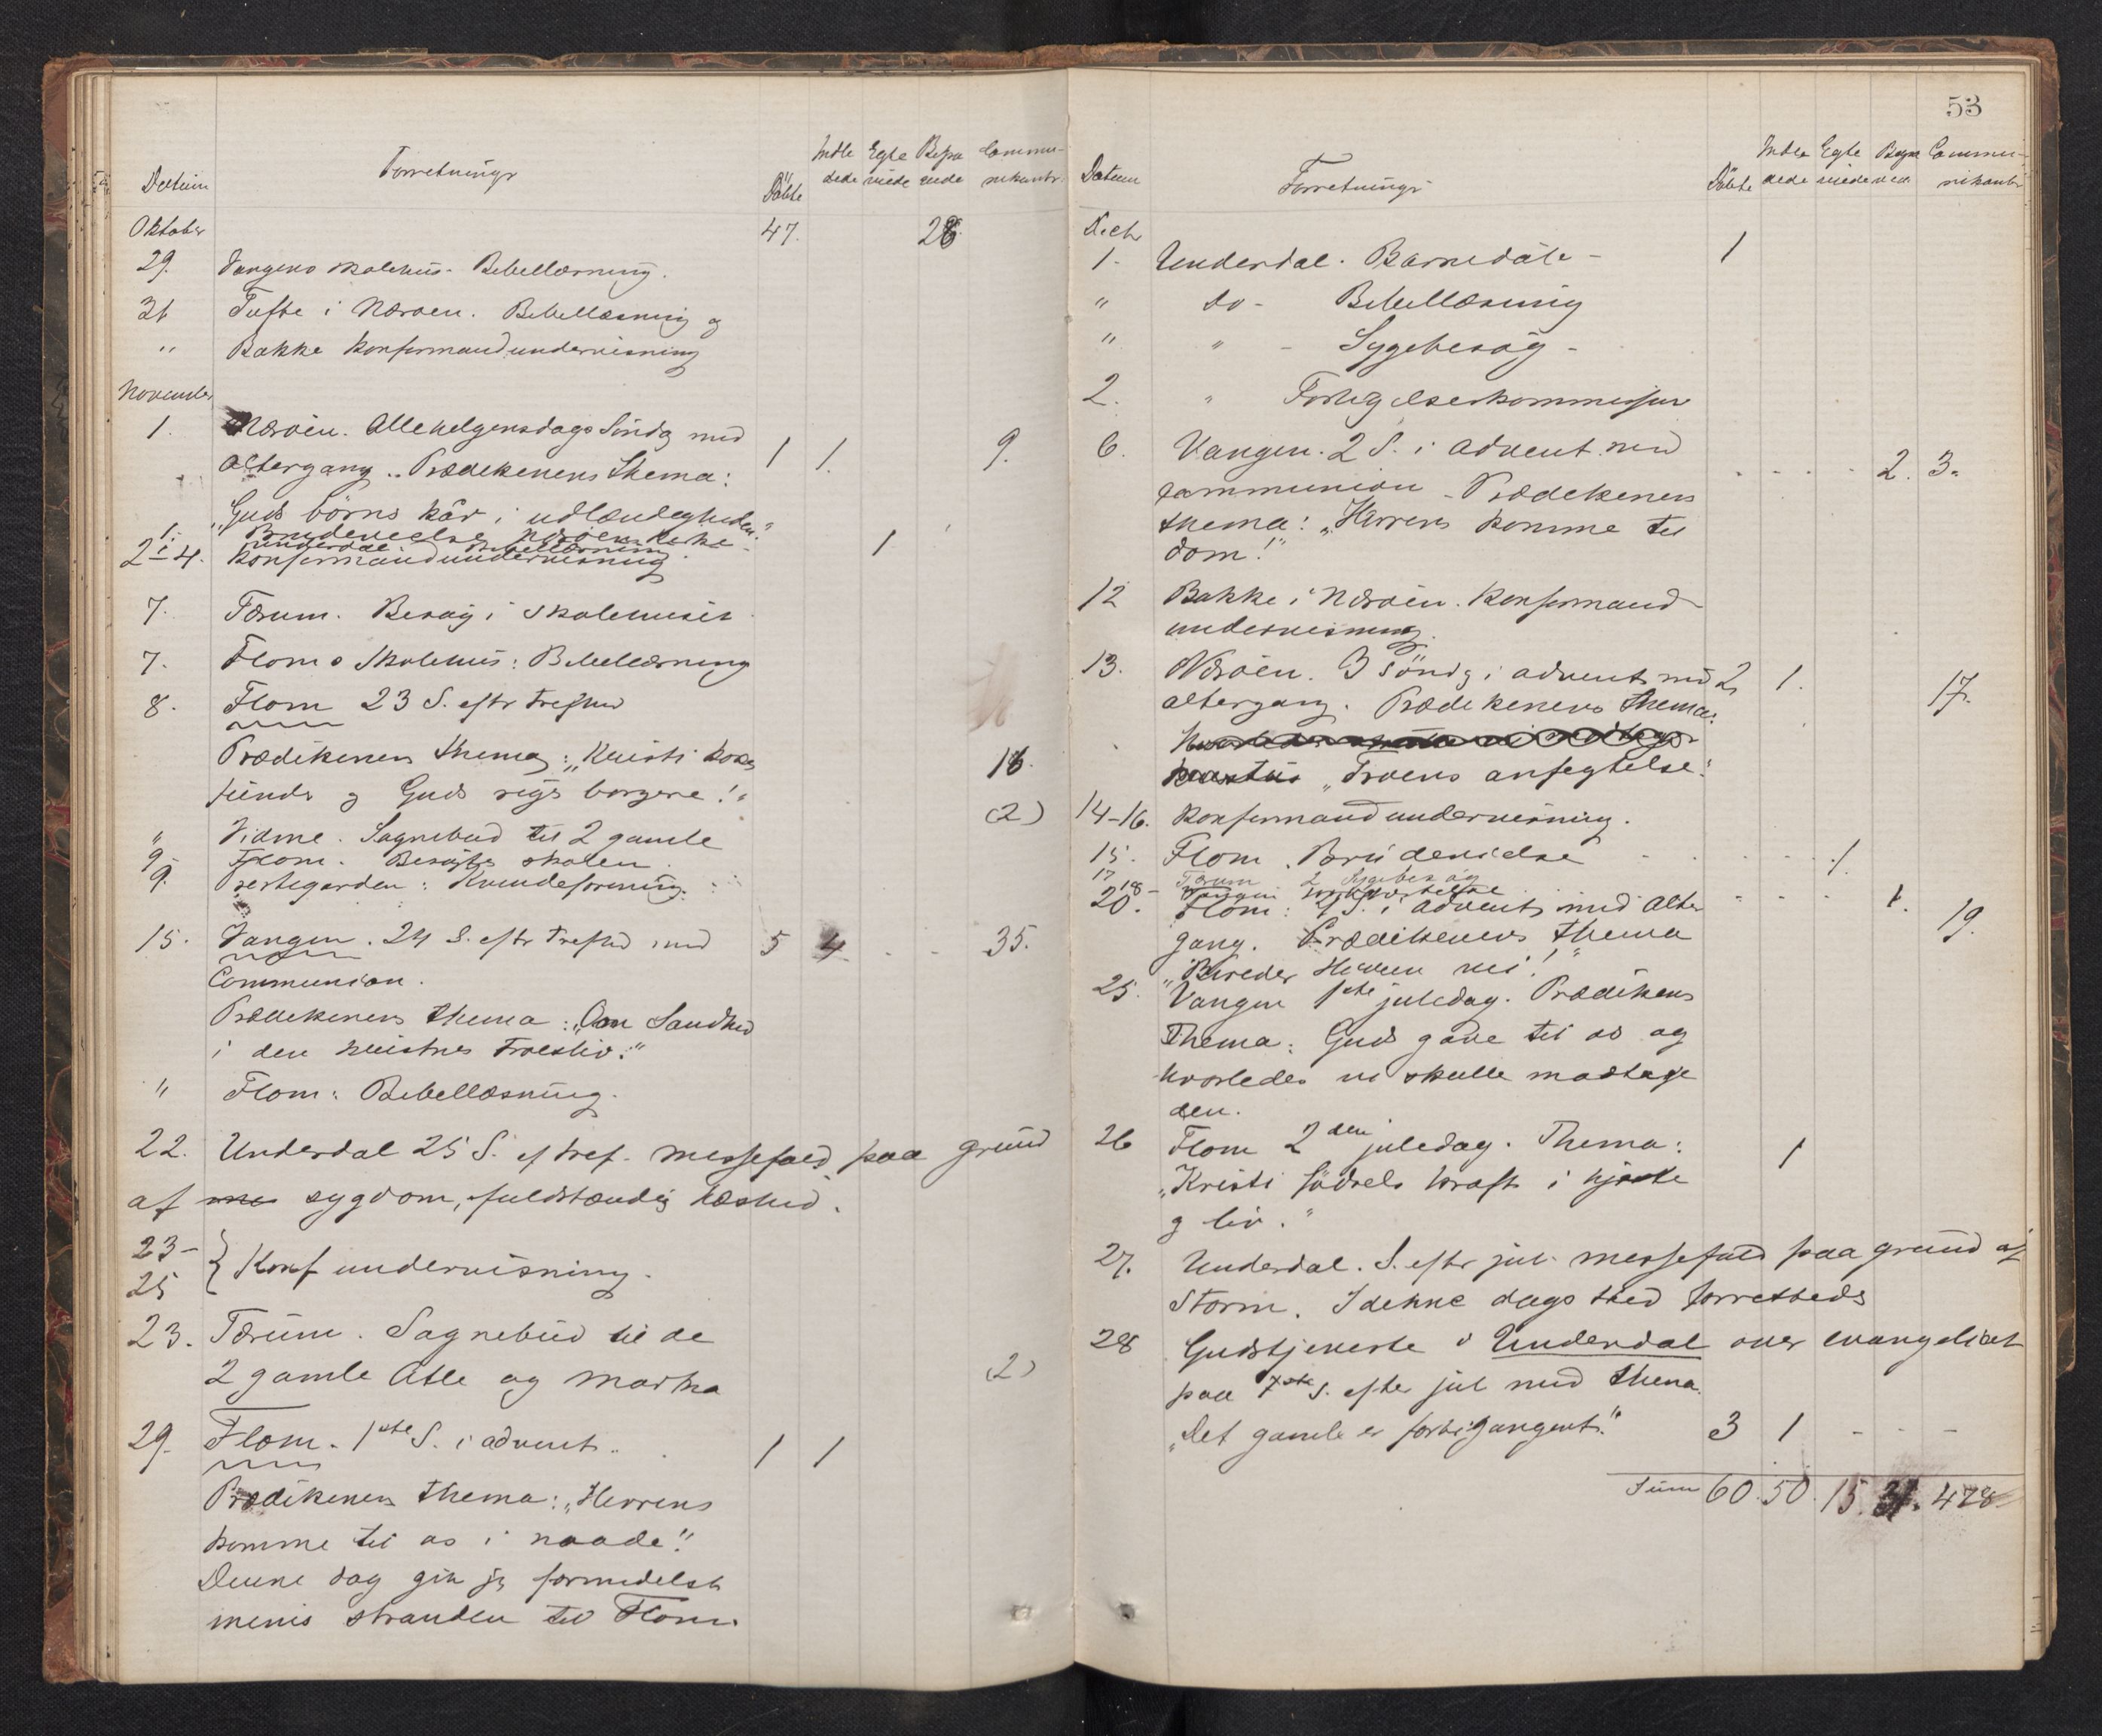 Datum Forretninger Döbte Indle Egte Begra Commu-
dede viede vede nikanter
Oktober 47. 28
29. Vangens skolehus. Bibellæsning.
31 Tufte i Nærøen. Bibellæsning og
" Bakke konfirmandundervisning
November
1. Nærøen. Allehelgensdags Söndag med 1 1. 9.
altergang. Prædikenens thema:
„Guds börns kår i udlændigheden."
1. Brudevielse Nærøens kirke 1
Underdal Bibellæsning
2-4. konfirmandundervisning
7. Færum. Besøg i skolehuset
7. Floms skolehus: Bibellæsning
8. Flom 23 S. eftr trefhed
Prædikenens thema: „Kristi kors 16.
fiender og Guds riges borgere!"
" Vidme. Sognebud til 2 gamle (2)
9. Flom. Besøgte skolen.
9. Prestegarden: Kvindeforening.
15. Vangen. 24 S. eftr trefhed med 5 4 - - 35.
Communion.
Prædikenens thema: „Om Sandhed
i den kristnes Troesliv."
" Flom: Bibellæsning.
22. Underdal 25 S. ef tref. messefald paa grund
af sygdom, fuldstændig hæshed.
23-
25 } Konf undervisning.
23. Færum. Sognebud til de
2 gamle Atle og Martha (2)
29. Flom. 1ste S. i advent. 1 1
Prædikenens thema: „Herrens
komme til os i naade!"
Denne dag gik jeg formedelst
menis stranden til Flom.
53
Datum Forretninger Döbte Indle Egte Begra Commu-
dede viede vede nikanter
Decbr
1. Underdal. Barnedåb - 1
" do - Bibellæsning
" " - Sygebesøg -
2. " Forligelseskommission
6. Vangen. 2 S. i advent med - - - - 2. 3.
communion - Prædikenens
thema: „Herrens komme til
dom!"
12 Bakke i Nærøen. Konfirmand-
undervisning.
13. Nærøen. 3 söndg i advent med 2 1. 17.
altergang. Prædikenens thema:
„Troens anfegtelse."
14-16. Konfirmandundervisning.
15. Flom. Brudevielse - - - - - 1.
17 Færum 2 Sygebesøg
18 - Vangen
20. Flom: 4 S. i advent med alter - - - 1. 19.
gang. Prædikenens thema
„Bereder Herren vei!"
25. Vangen 1ste juledag. Prædikens
Thema: Guds gave til os og
hvorledes vi skulle modtage
den.
26 Flom 2den juledag. Thema: 1
„Kristi födsels kraft i hjerte
og liv."
27. Underdal. S. eftr jul. messefald paa grund af
Storm. I denne dags sted forrettedes
28 Gudstjeneste i Underdal over evangeliet
paa S. efter jul med thema
„Det gamle er forbigangent." 3 1 - - -
Sum 60. 50. 15. 31. 478